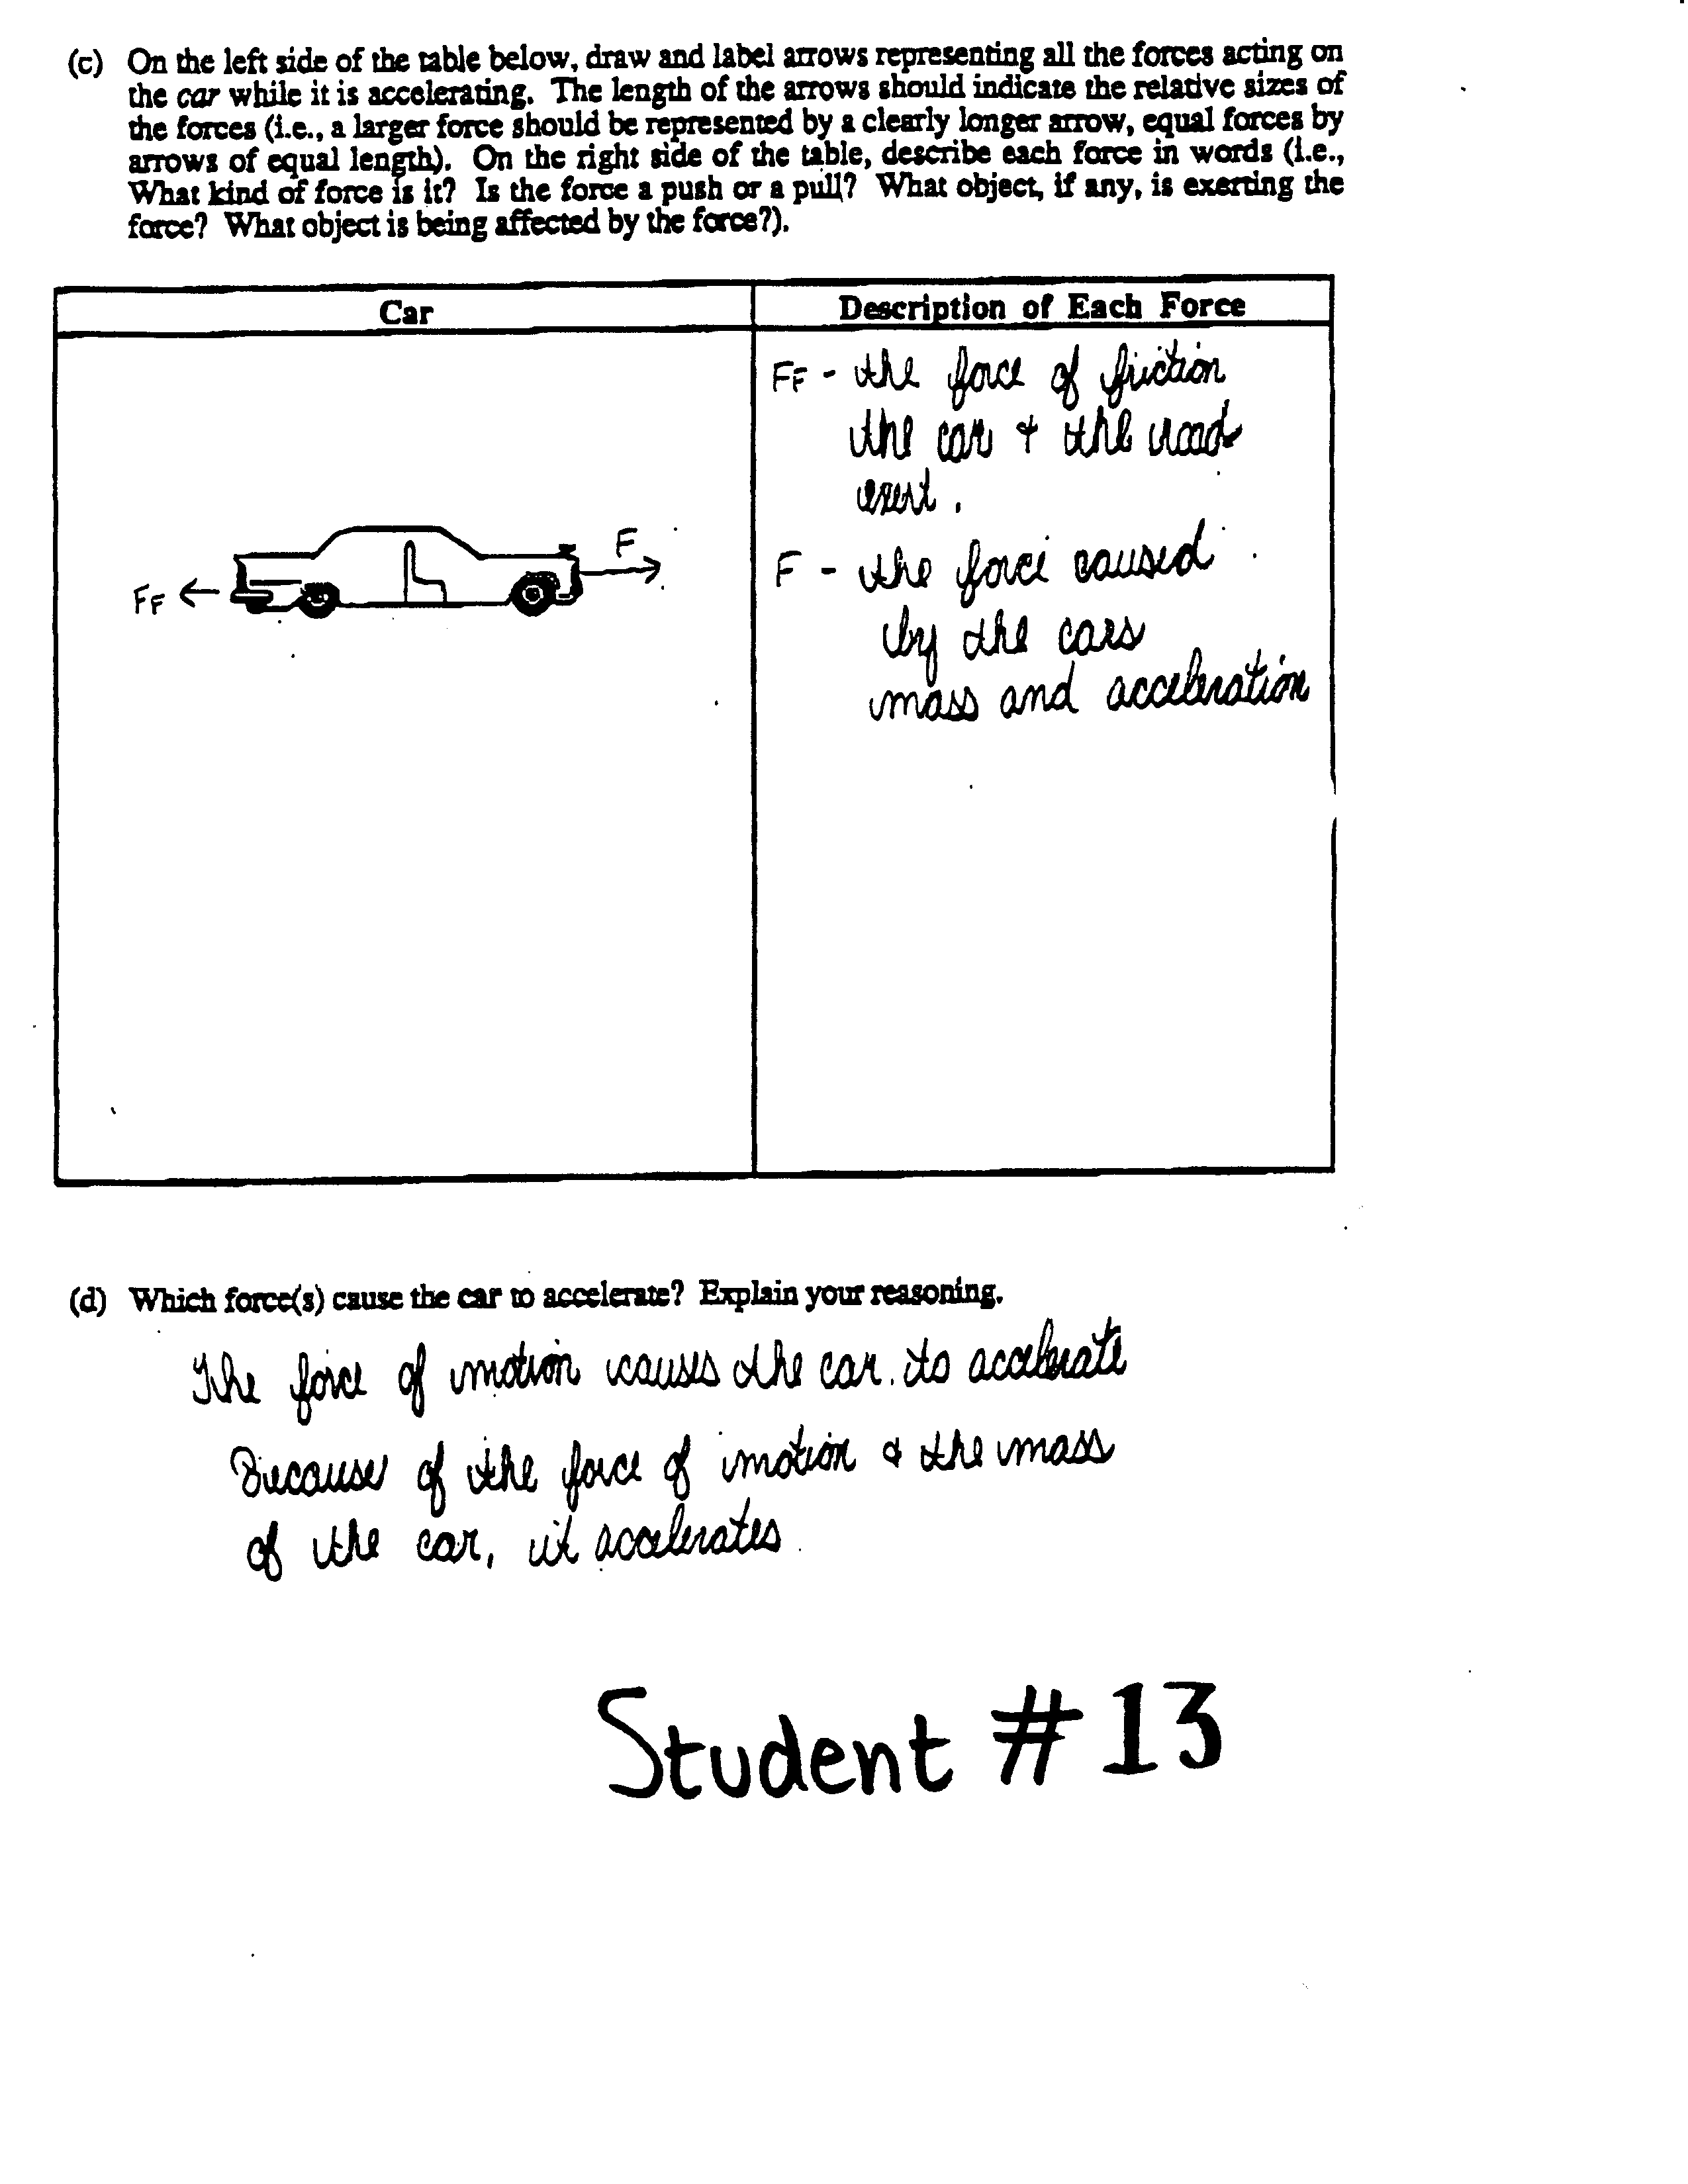 (c) On the left side of the table below, draw and label arrows representing all the forces acting on
the car while it is accelerating. The length of the arrows should indicate the relative sizes of
the forces (i.e., a larger force should be represented by a clearly longer arrow, equal forces by
arrows of equal length). On the right side of the table, describe each force in words (i.e.,
What kind of force is it? Is the force a push or a pull? What object, if any, is exerting the
force? What object is being affected by the force?).
Car
Description of Each Force
FF - the force of friction
the car + the road
exert.
F
FF
F - the force caused
by the cars
mass and acceleration
(d) Which force(s) cause the car to accelerate? Explain your reasoning.
The force of motion causes the car to accelerate
Because of the force of motion & the mass
of the car, it accelerates
Student #13